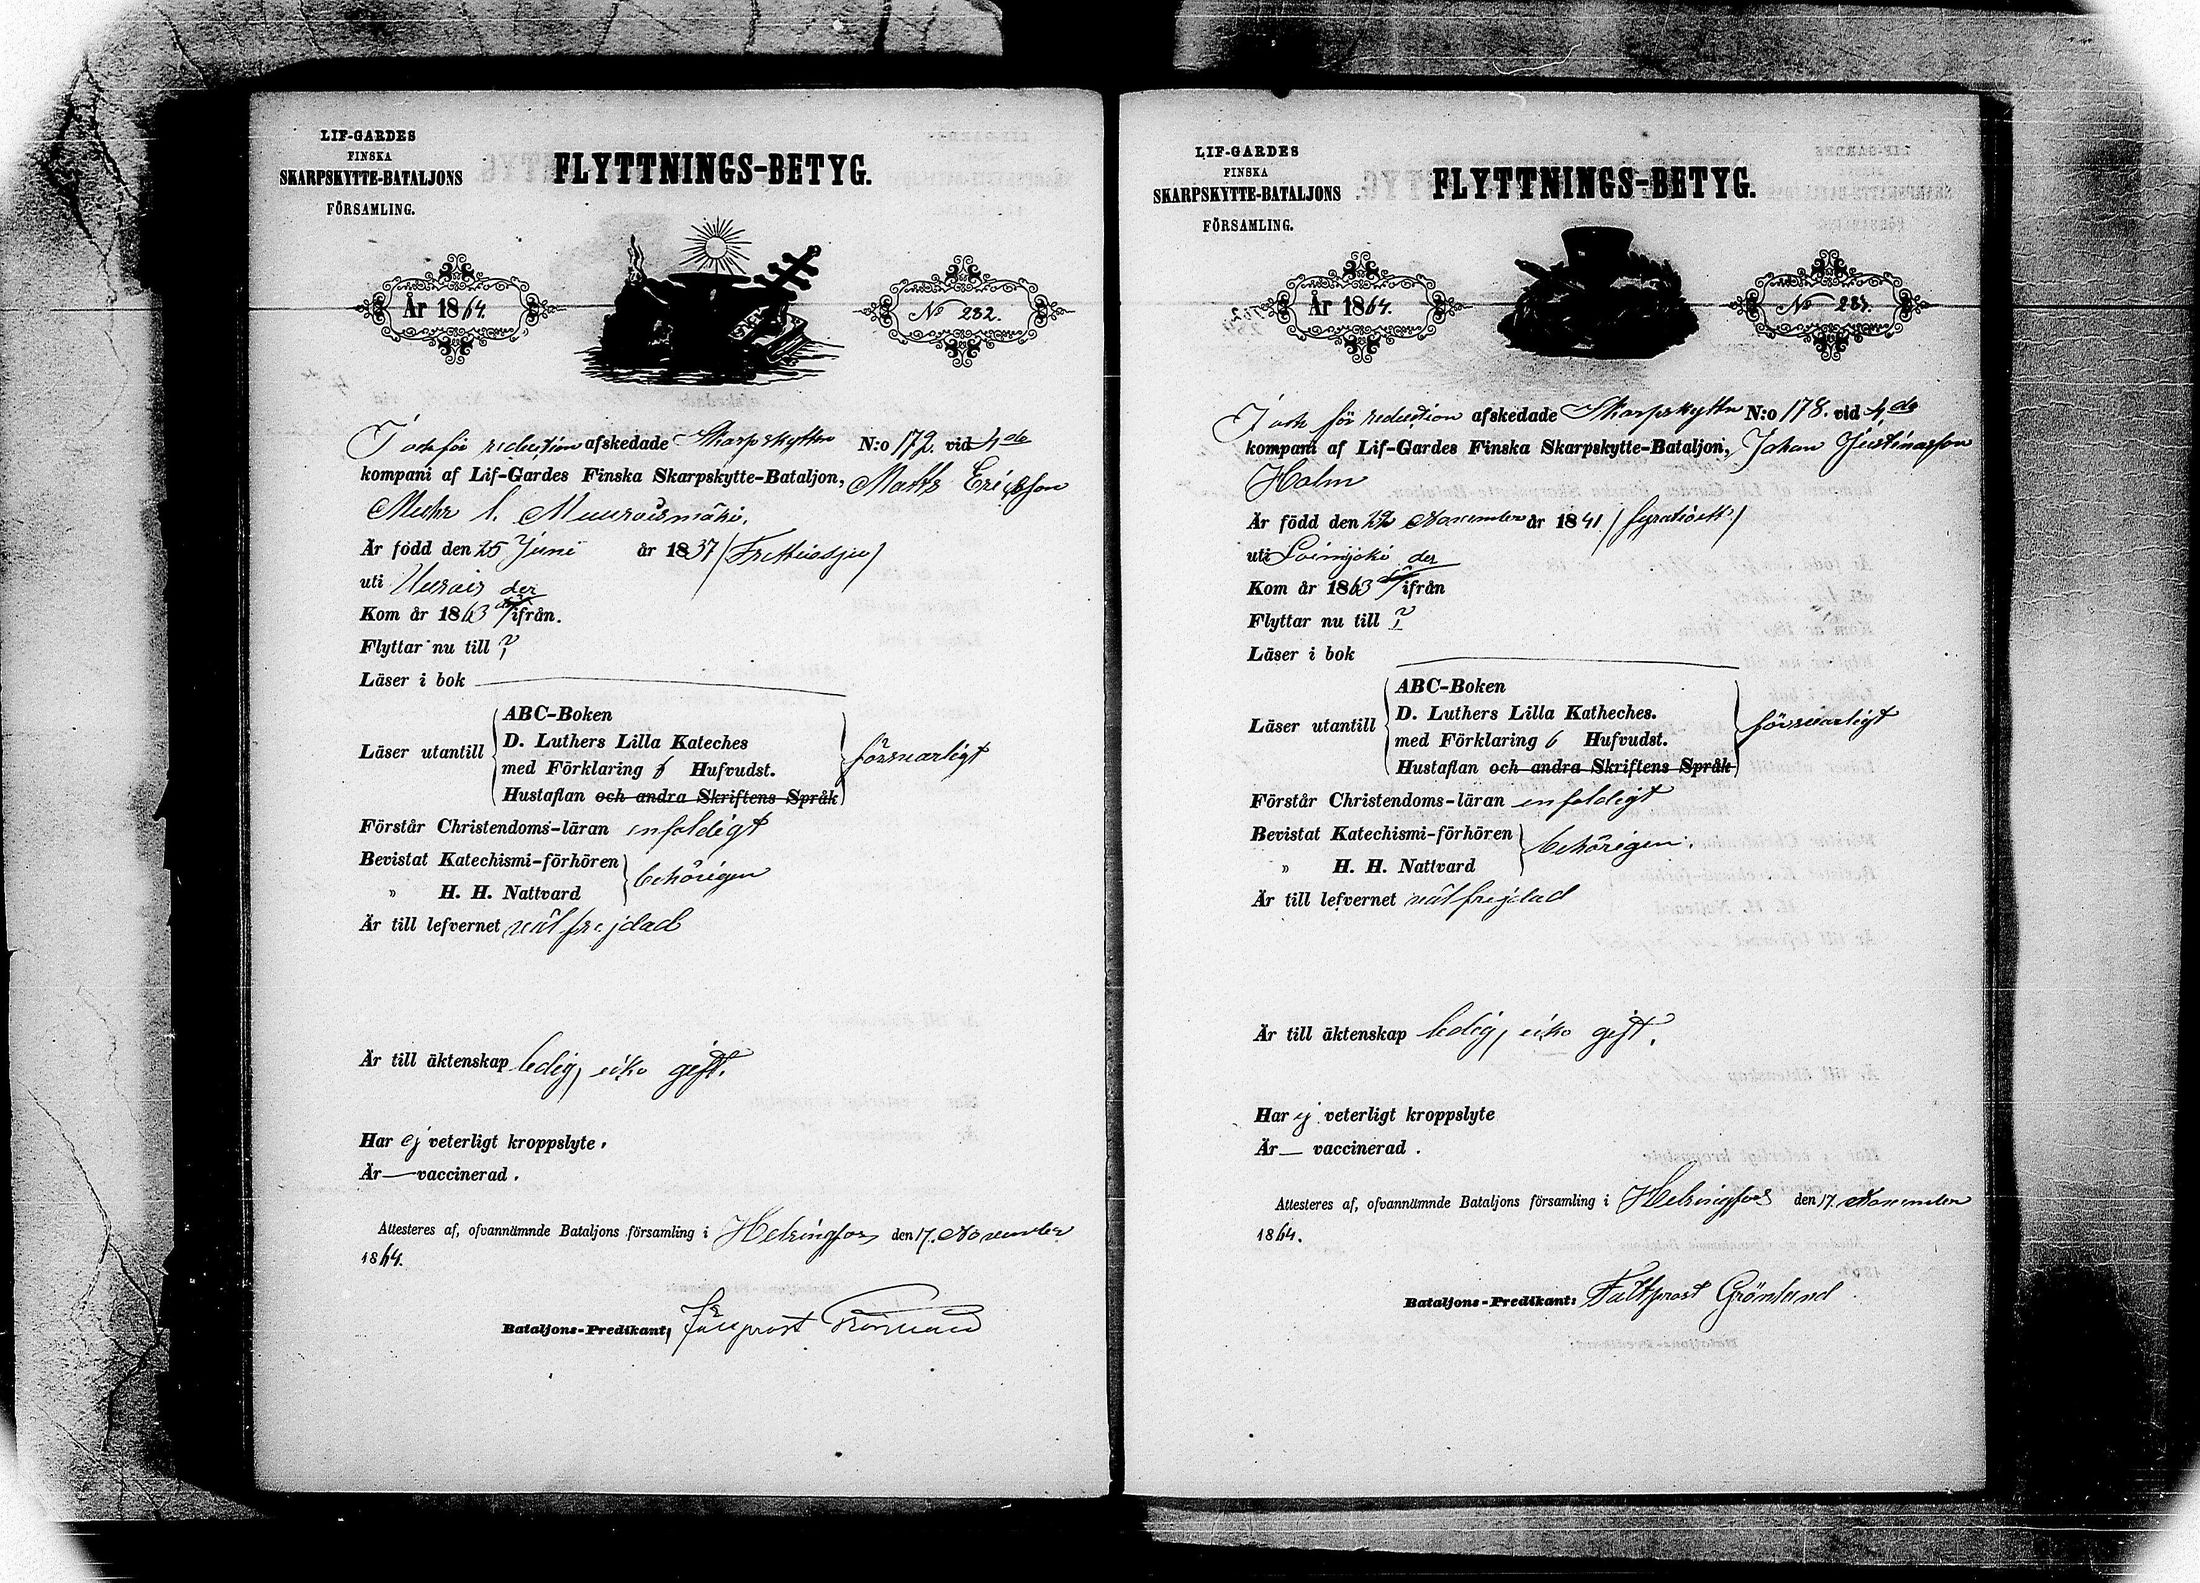 LIF-GARDES
FINSKA
SKARPSKYTTE-BATALJONS
FÖRSAMLING.
FLYTTNINGS-BETYG.
År 1864.
No 232.
I och för reduction afskedade Skarpskytten N:o 172. vid 4de
kompani af Lif-Gardes Finska Skarpskytte-Bataljon, Matts Ericsson
Muhr l. Muuraismäki.
Är född den 25 Juni år 1837 (Trettiosju)
uti
Kom år 1863 der ifrån.
Flyttar nu till ?
Läser i bok
Läser utantill
ABC-Boken
D. Luthers Lilla Kateches
med Förklaring 6 Hufvudst.
Hustaflan och andra Skriftens Språk
försvarligt
Förstår Christendoms-läran enfaldigt
Bevistat Katechismi-förhören
" H. H. Nattvard
behörigen
Är till lefvernet välfrejdad
Är till äktenskap ledig, icke gift.
Har ej veterligt kroppslyte.
Är — vaccinerad.
Attesteres af, ofvannämnde Bataljons församling i Helsingfors den 17. November
1864.
Bataljons-Predikant, Fältprost Grönlund
LIF-GARDES
FINSKA
SKARPSKYTTE-BATALJONS
FÖRSAMLING.
FLYTTNINGS-BETYG.
År 1864.
No 233.
I och för reduction afskedade Skarpskytten N:o 178. vid 4de
kompani af Lif-Gardes Finska Skarpskytte-Bataljon, Johan Justinasson
Holm
Är född den 22 November år 1841 (fyrationett)
uti Loimijoki
Kom år 1863 der ifrån
Flyttar nu till ?
Läser i bok
Läser utantill
ABC-Boken
D. Luthers Lilla Katheches.
med Förklaring 6 Hufvudst.
Hustaflan och andra Skriftens Språk
försvarligt
Förstår Christendoms-läran enfaldigt
Bevistat Katechismi-förhören
" H. H. Nattvard
behörigen.
Är till lefvernet välfrejdad
Är till äktenskap ledig, icke gift.
Har ej veterligt kroppslyte
Är — vaccinerad.
Attesteres af, ofvannämnde Bataljons församling i Helsingfors den 17. November
1864.
Bataljons-Predikant: Fältprost Grönlund